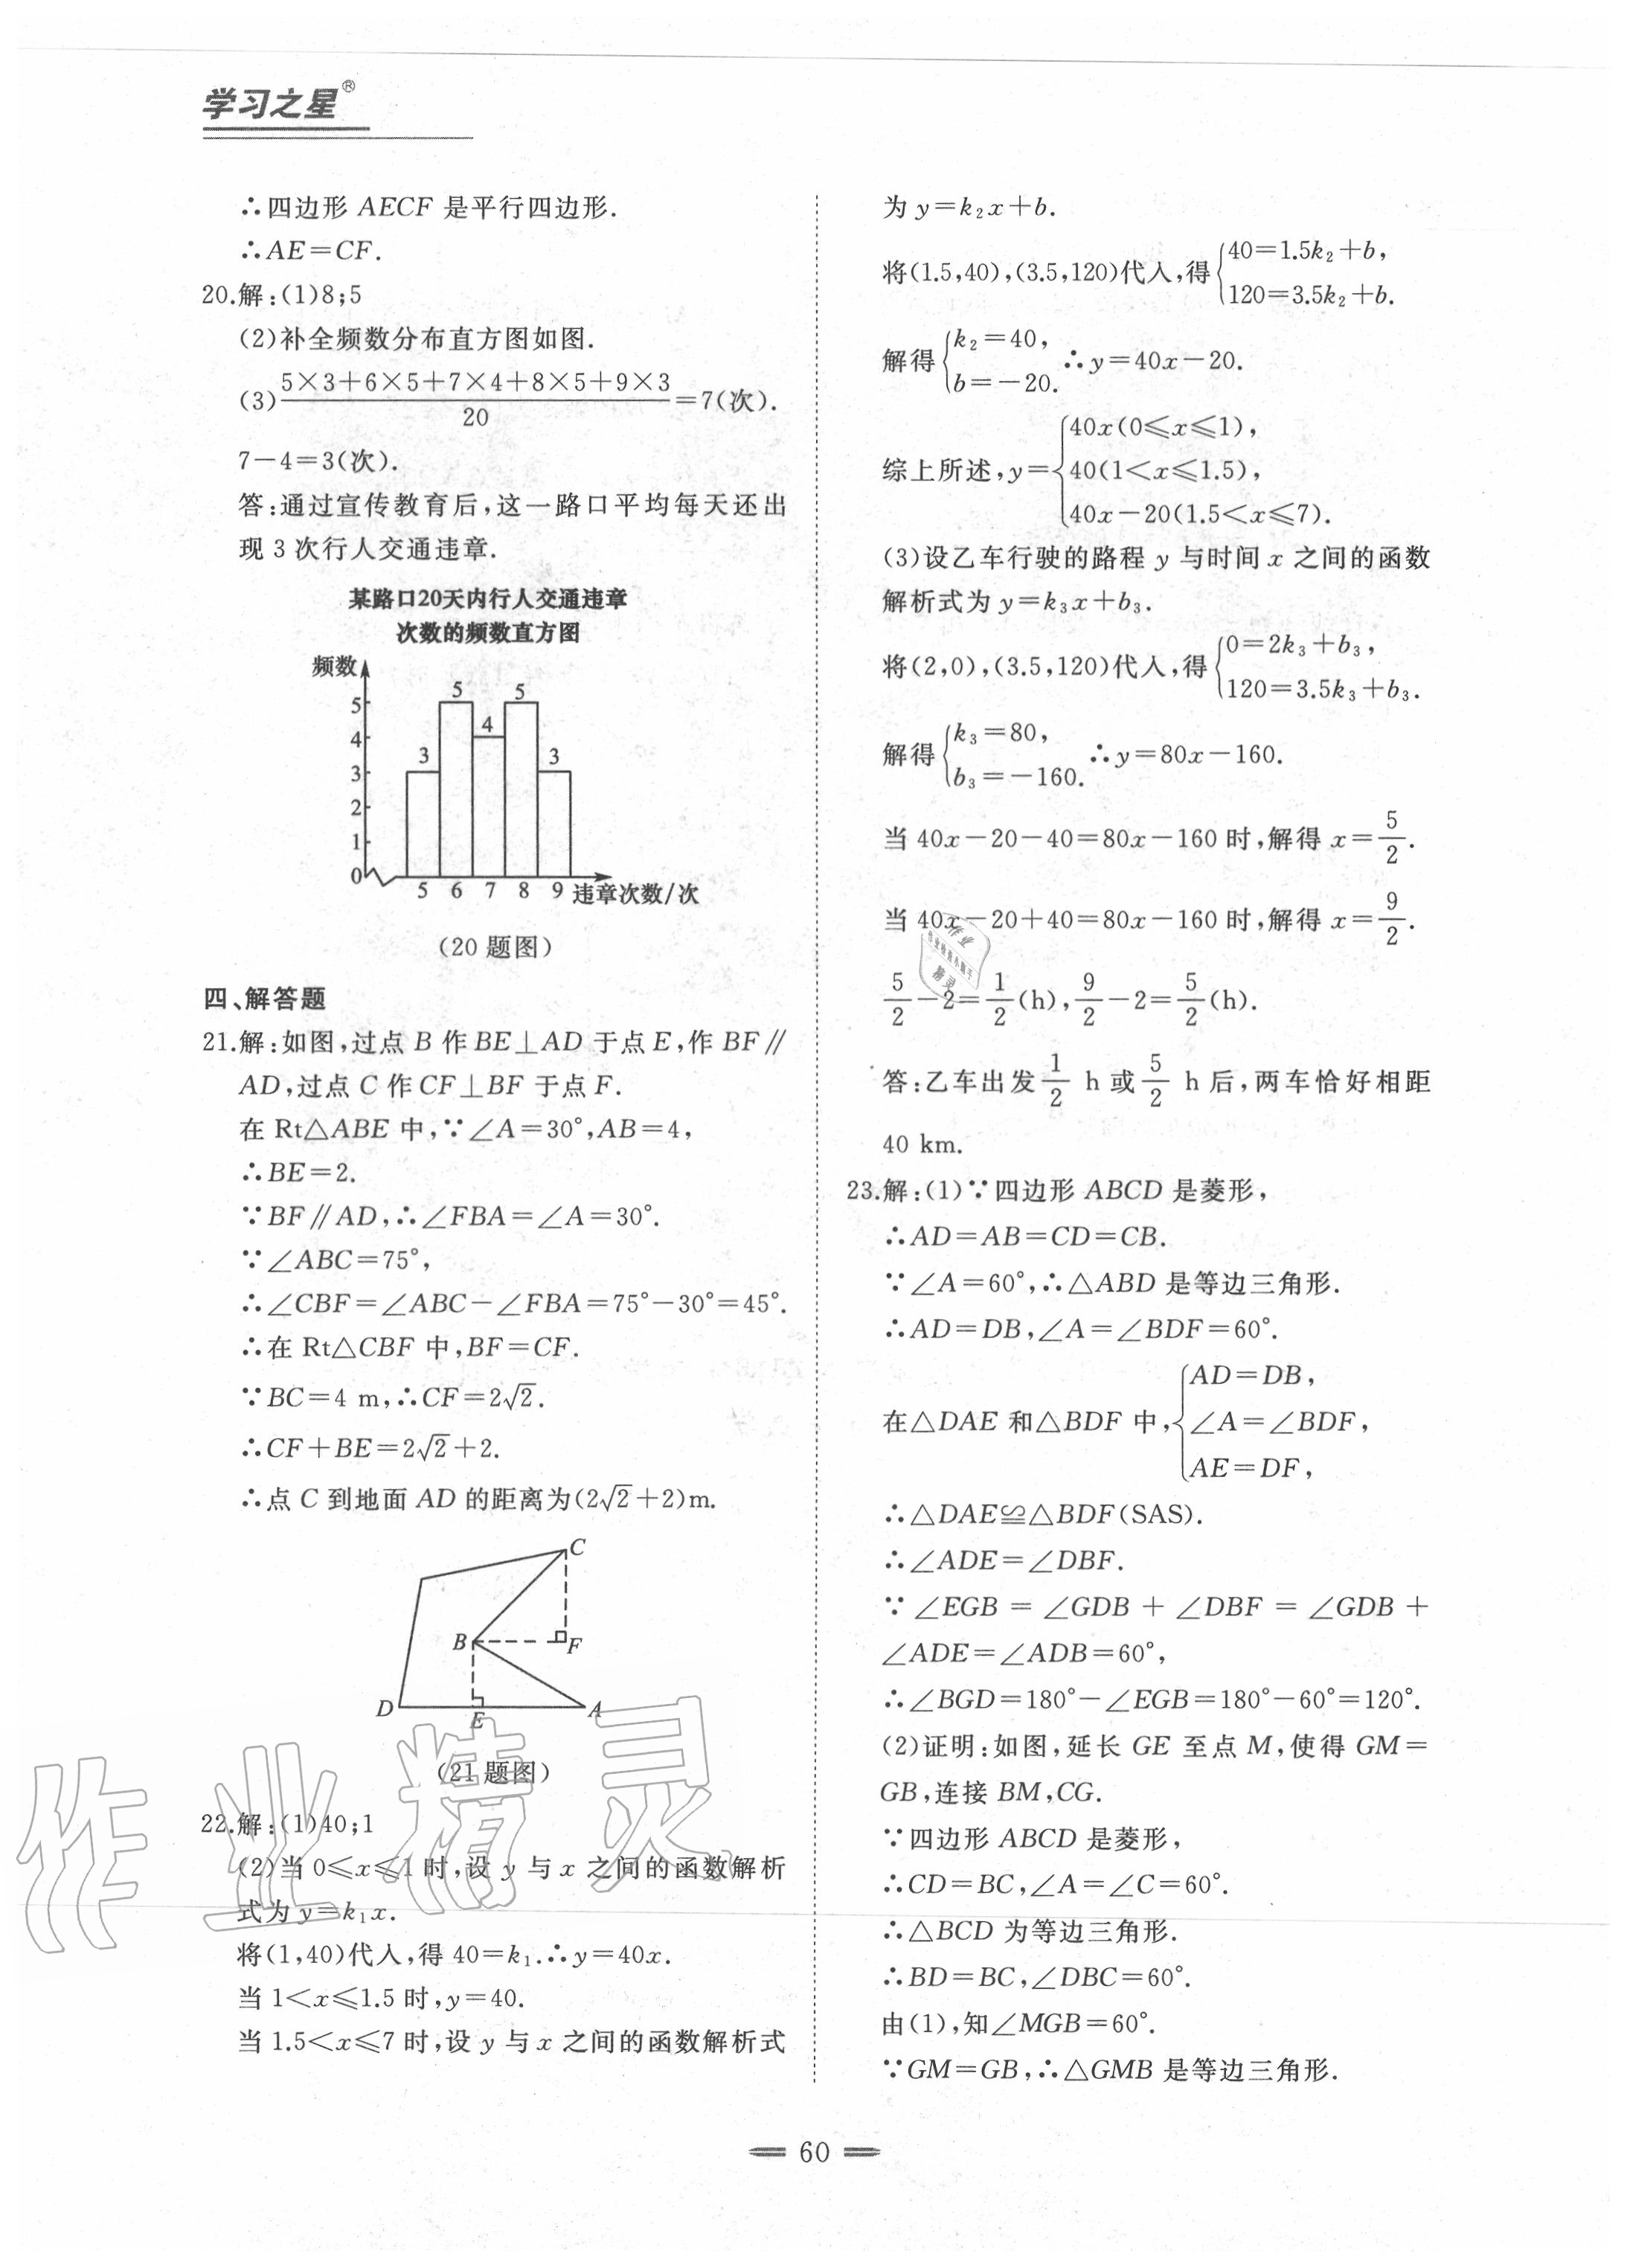 学习之星®
∴四边形 AECF 是平行四边形.
∴AE=CF.
20.解:(1)8;5
(2)补全频数分布直方图如图.
(3)(5×3+6×5+7×4+8×5+9×3)/20=7(次).
7-4=3(次).
答:通过宣传教育后,这一路口平均每天还出
现 3 次行人交通违章.
某路口20天内行人交通违章
次数的频数直方图
频数
5
4
3
2
1
0
3
5
4
5
3
5 6 7 8 9 违章次数/次
(20 题图)
四、解答题
21.解:如图,过点 B 作 BE⊥AD 于点 E,作 BF∥
AD,过点 C 作 CF⊥BF 于点 F.
在 Rt△ABE 中,∵∠A=30°,AB=4,
∴BE=2.
∵BF∥AD,∴∠FBA=∠A=30°.
∵∠ABC=75°,
∴∠CBF=∠ABC-∠FBA=75°-30°=45°.
∴在 Rt△CBF 中,BF=CF.
∵BC=4 m,∴CF=2√2.
∴CF+BE=2√2+2.
∴点 C 到地面 AD 的距离为(2√2+2)m.
C
B
F
D
E
A
(21 题图)
22.解:(1)40;1
(2)当 0≤x≤1 时,设 y 与 x 之间的函数解析
式为 y=k₁x.
将(1,40)代入,得 40=k₁.∴y=40x.
当 1<x≤1.5 时,y=40.
当 1.5<x≤7 时,设 y 与 x 之间的函数解析式
为 y=k₂x+b.
将(1.5,40),(3.5,120)代入,得{40=1.5k₂+b,
120=3.5k₂+b.
解得{k₂=40,
b=-20. ∴y=40x-20.
综上所述,y={40x(0≤x≤1),
40(1<x≤1.5),
40x-20(1.5<x≤7).
(3)设乙车行驶的路程 y 与时间 x 之间的函数
解析式为 y=k₃x+b₃.
将(2,0),(3.5,120)代入,得{0=2k₃+b₃,
120=3.5k₃+b₃.
解得{k₃=80,
b₃=-160. ∴y=80x-160.
当 40x-20-40=80x-160 时,解得 x=5/2.
当 40x-20+40=80x-160 时,解得 x=9/2.
5/2-2=1/2(h),9/2-2=5/2(h).
答:乙车出发 1/2 h 或 5/2 h 后,两车恰好相距
40 km.
23.解:(1)∵四边形 ABCD 是菱形,
∴AD=AB=CD=CB.
∵∠A=60°,∴△ABD 是等边三角形.
∴AD=DB,∠A=∠BDF=60°.
在△DAE 和△BDF 中,{AD=DB,
∠A=∠BDF,
AE=DF,
∴△DAE≌△BDF(SAS).
∴∠ADE=∠DBF.
∵∠EGB=∠GDB+∠DBF=∠GDB+
∠ADE=∠ADB=60°,
∴∠BGD=180°-∠EGB=180°-60°=120°.
(2)证明:如图,延长 GE 至点 M,使得 GM=
GB,连接 BM,CG.
∵四边形 ABCD 是菱形,
∴CD=BC,∠A=∠C=60°.
∴△BCD 为等边三角形.
∴BD=BC,∠DBC=60°.
由(1),知∠MGB=60°.
∵GM=GB,∴△GMB 是等边三角形.
作业精灵
60